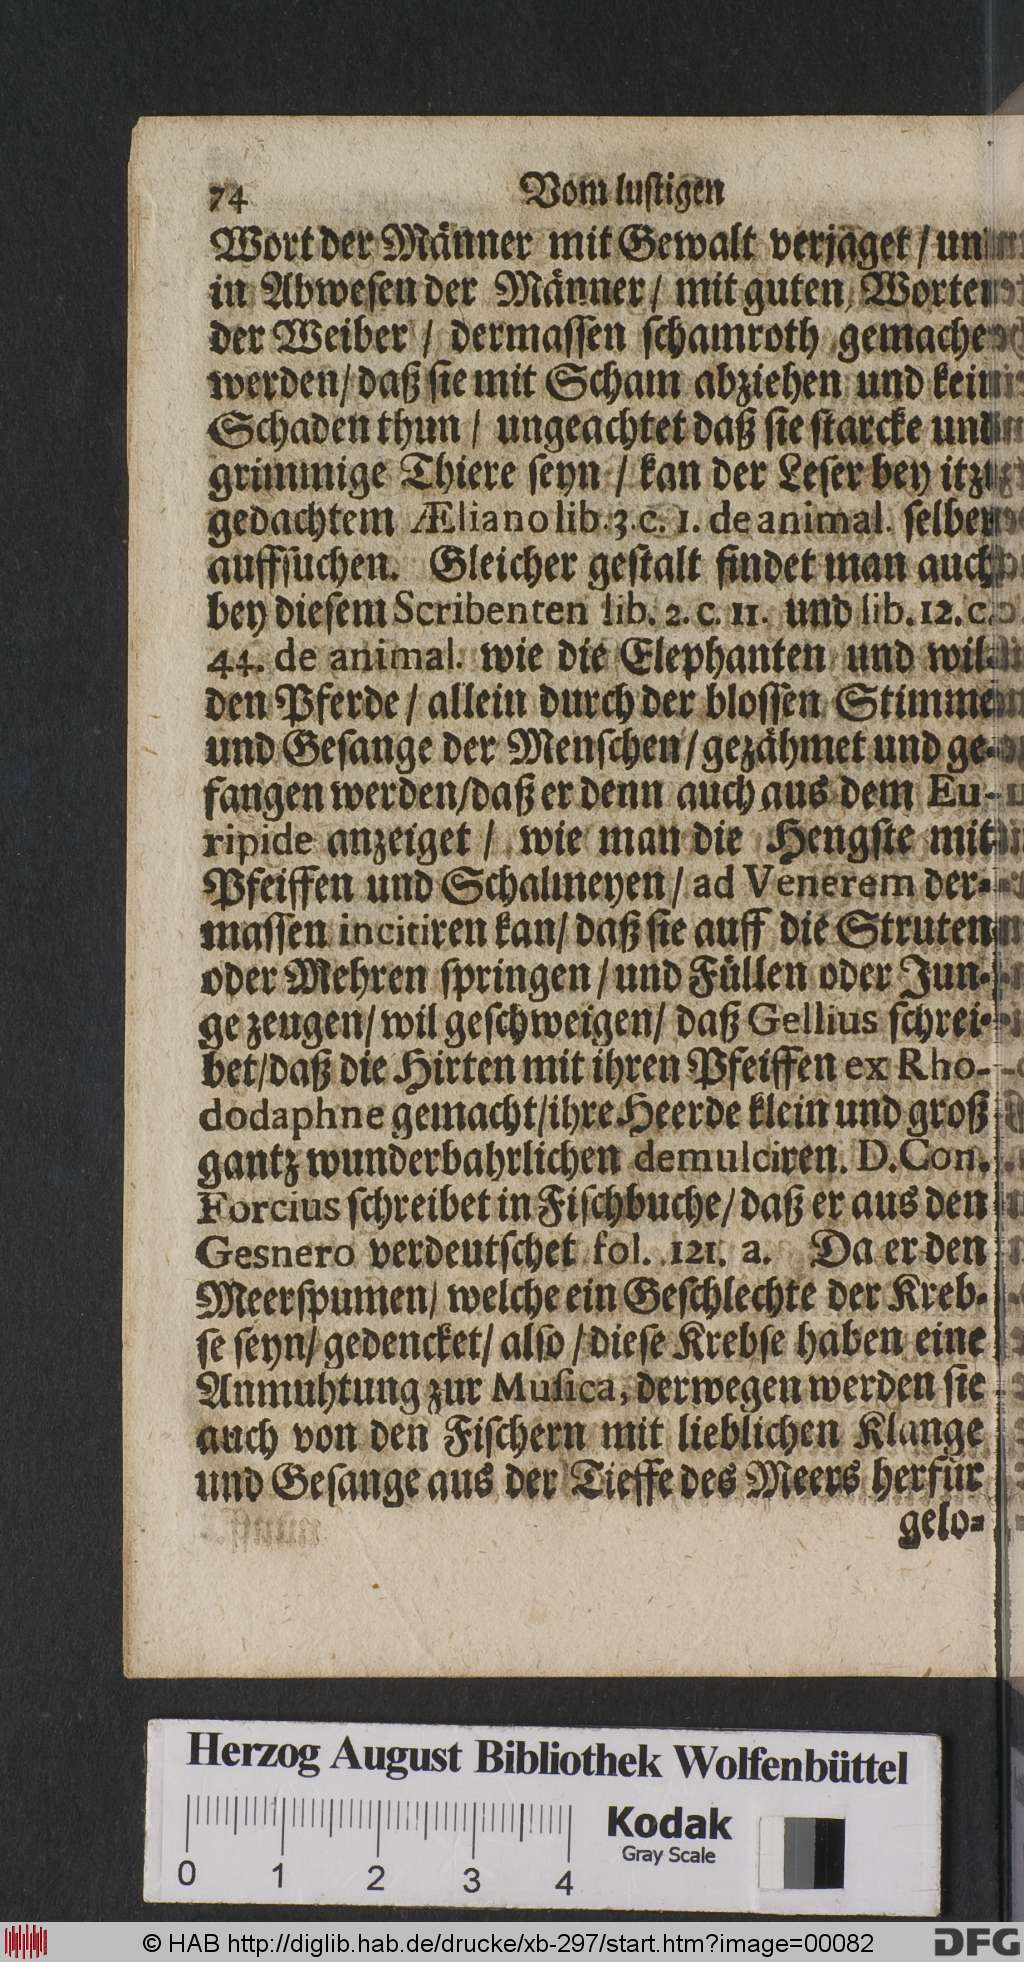 74 Vom lustigen
Wort der Männer mit Gewalt verjaget / un
in Abwesen der Männer / mit guten Worten
der Weiber / dermassen schamroth gemache
werden / daß sie mit Scham abziehen und kein
Schaden thun / ungeachtet daß sie starcke und
grimmige Thiere seyn / kan der Leser bey itzt
gedachtem Æliano lib. 3. c. 1. de animal. selber
auffsuchen. Gleicher gestalt findet man auch
bey diesem Scribenten lib. 2. c. 11. und lib. 12. c.
44. de animal. wie die Elephanten und wil-
den Pferde / allein durch der blossen Stimme
und Gesange der Menschen / gezähmet und ge-
fangen werden / daß er denn auch aus dem Eu-
ripide anzeiget / wie man die Hengste mit
Pfeiffen und Schalmeyen / ad Venerem der-
massen incitiren kan / daß sie auff die Struten
oder Mehren springen / und Füllen oder Jun-
ge zeugen / wil geschweigen / daß Gellius schrei-
bet / daß die Hirten mit ihren Pfeiffen ex Rho-
dodaphne gemacht / ihre Heerde klein und groß
gantz wunderbahrlichen demulciren. D. Con.
Forcius schreibet in Fischbuche / daß er aus den
Gesnero verdeutschet fol. 121. a. Da er den
Meerspumen / welche ein Geschlechte der Kreb-
se seyn / gedencket / also / diese Krebse haben eine
Anmuhtung zur Musica, derwegen werden sie
auch von den Fischern mit lieblichen Klange
und Gesange aus der Tieffe des Meers herfür
gelo-
Herzog August Bibliothek Wolfenbüttel
Kodak
Gray Scale
0 1 2 3 4
© HAB http://diglib.hab.de/drucke/xb-297/start.htm?image=00082
DFG